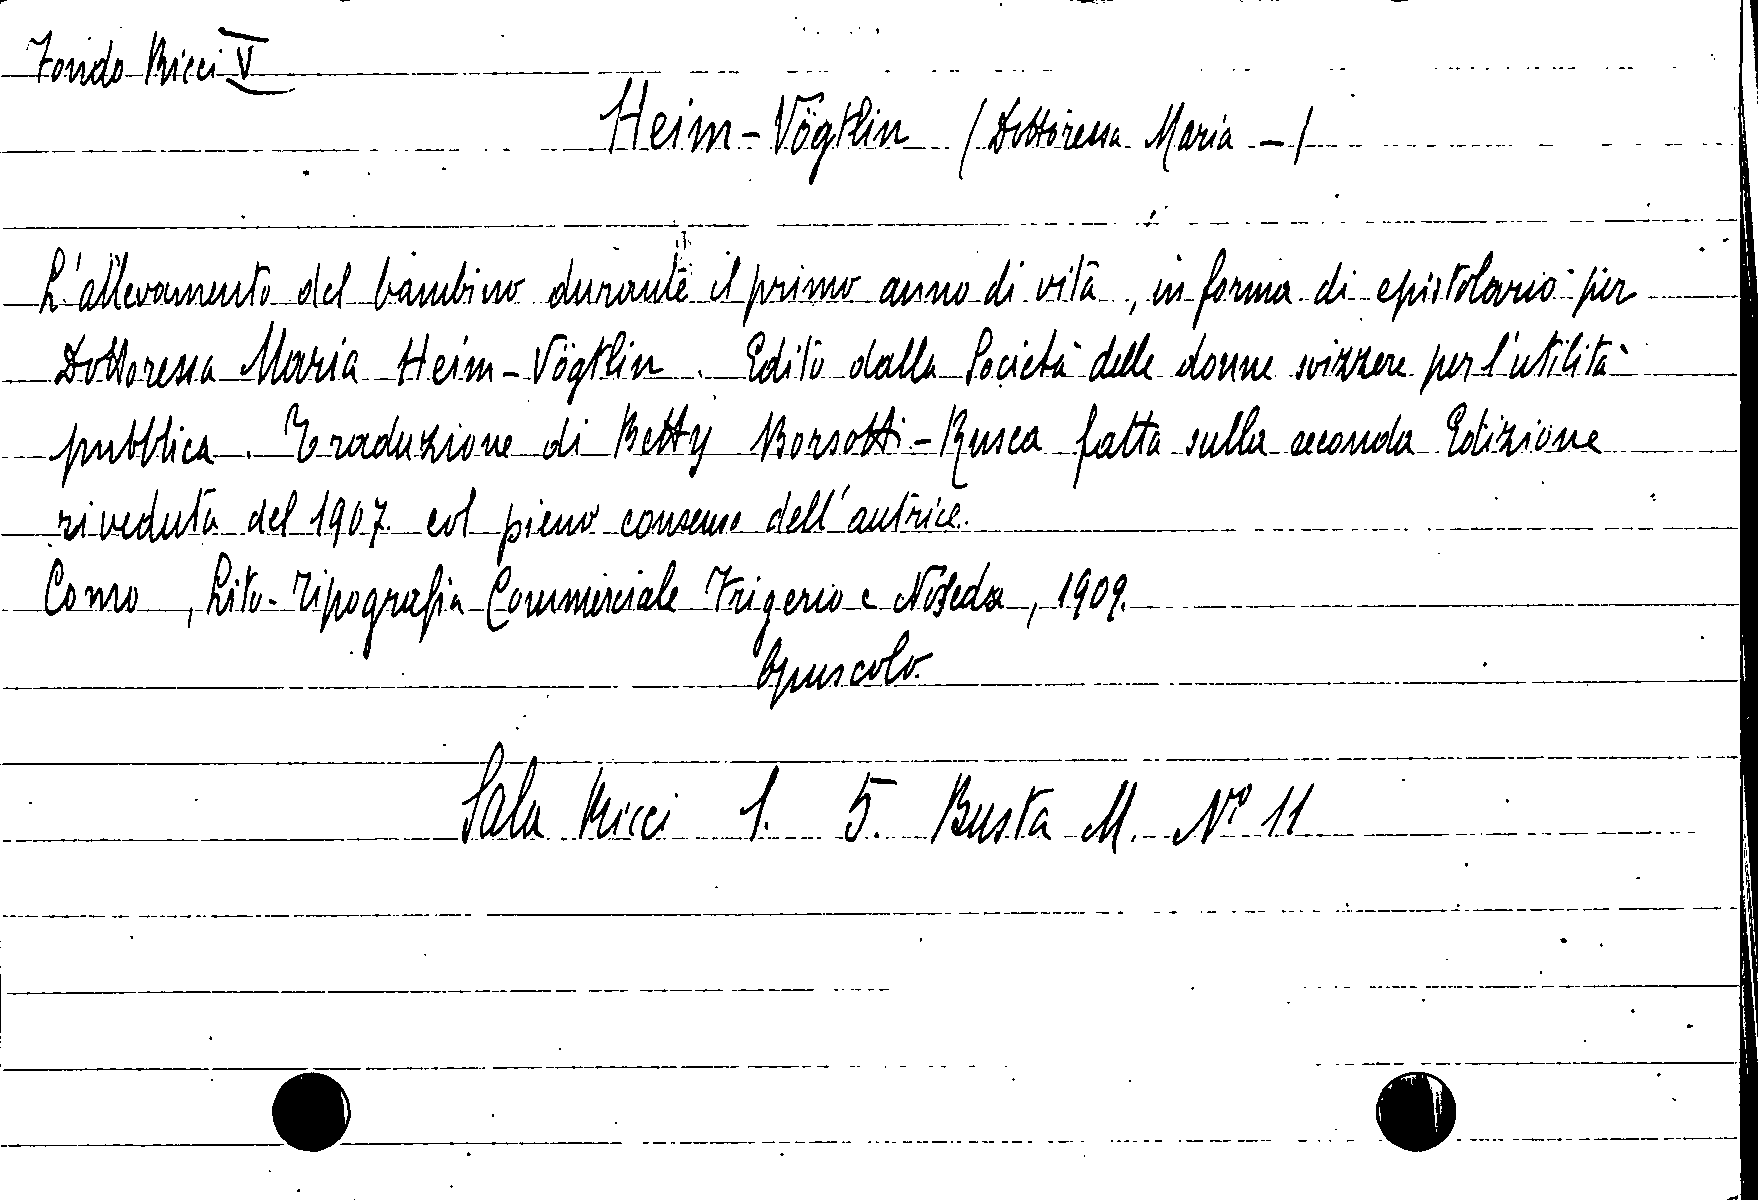 Fondo Ricci V
Heim-Vögtlin (Dottoressa Maria -)
L'allevamento del bambino durante il primo anno di vita, in forma di epistolario per
Dottoressa Maria Heim-Vögtlin. Edito dalla Società delle donne svizzere per l'utilità
pubblica. Traduzione di Betty Borsotti-Rusca fatta sulla seconda Edizione
riveduta del 1907. col pieno consenso dell'autrice.
Como, Lito-Tipografia Commerciale Frigerio e Noseda, 1909.
Opuscolo.
Sala Ricci 1. 5. Busta M. Nº 11